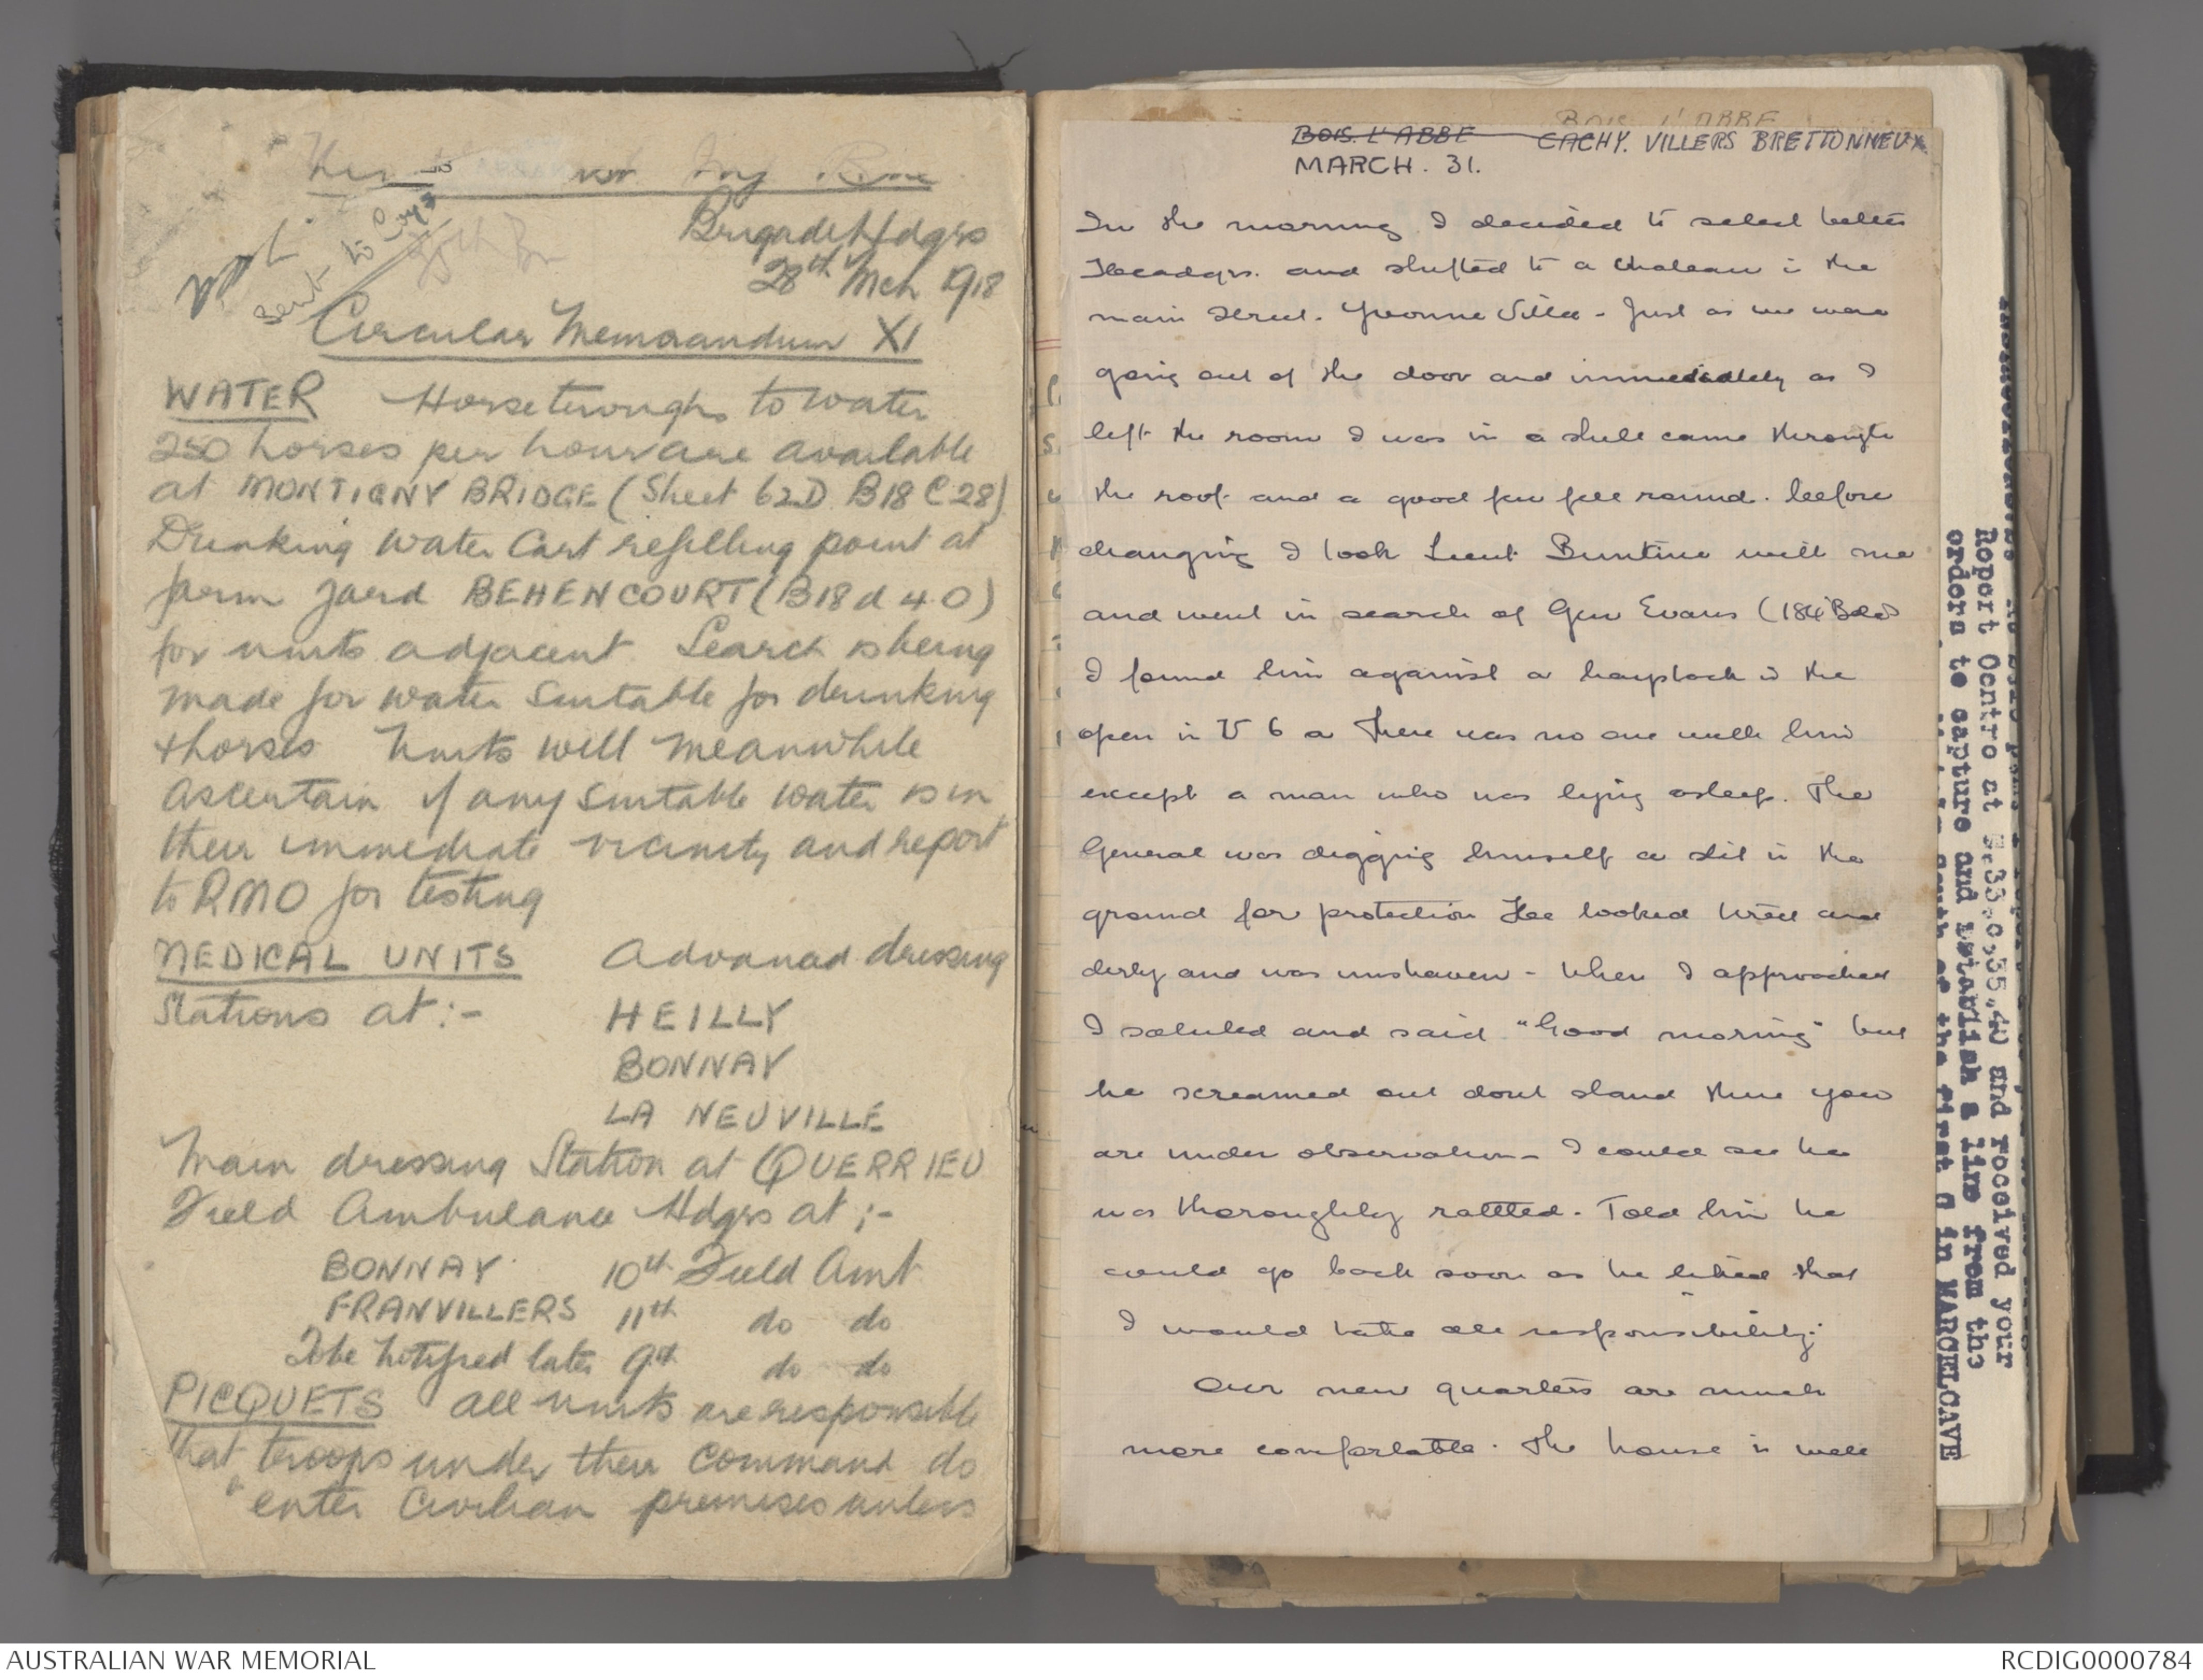 Inf
Brigade Hdqrs
28th Mch 1918
Sent to Coys
Circular Memorandum XI
WATER Horse troughs to water
250 horses per hour are available
at MONTIGNY BRIDGE (Sheet 62D B18 C 28)
Drinking water Cart refilling point at
farm yard BEHENCOURT (B18 d 4.0)
for units adjacent. Search is being
made for water suitable for drinking
+ horses Units will meanwhile
ascertain if any suitable water is in
their immediate vicinity and report
to RMO for testing
MEDICAL UNITS Advanced dressing
Stations at :- HEILLY
BONNAY
LA NEUVILLE
Main dressing Station at QUERRIEU
Field Ambulance Hdqrs at ;-
BONNAY 10th Field Amb
FRANVILLERS 11th do do
To be notified later 9th do do
PICQUETS all units are responsible
that troops under their command do
enter Civilian premises unless
BOIS L'ABBE
BOIS. L'ABBE CACHY. VILLERS BRETTONNEUX.
MARCH. 31.
In the morning I decided to select better
Headqrs. and shifted to a Chateau in the
main Street. Yvonne Villa - Just as we were
going out of the door and immediately as I
left the room I was in a shell came through
the roof and a good few fell round. before
changing I took Lieut Buntine with me
and went in search of Gen Evans (184 Bde)
I found him against a haystack in the
open in U 6 a There was no one with him
except a man who was lying asleep. The
General was digging himself a slit in the
ground for protection He looked tired and
dirty and was unshaven - When I approached
I saluted and said "Good morning" but
he screamed out dont stand there you
are under observation - I could see he
was thoroughly rattled. Told him he
could go back soon as he liked that
I would take all responsibility;
Our new quarters are much
more comfortable. The house is well
Report Centre at and received your
orders to capture and establish a line from the
south of the first C in MARCELCAVE
AUSTRALIAN WAR MEMORIAL
RCDIG0000784